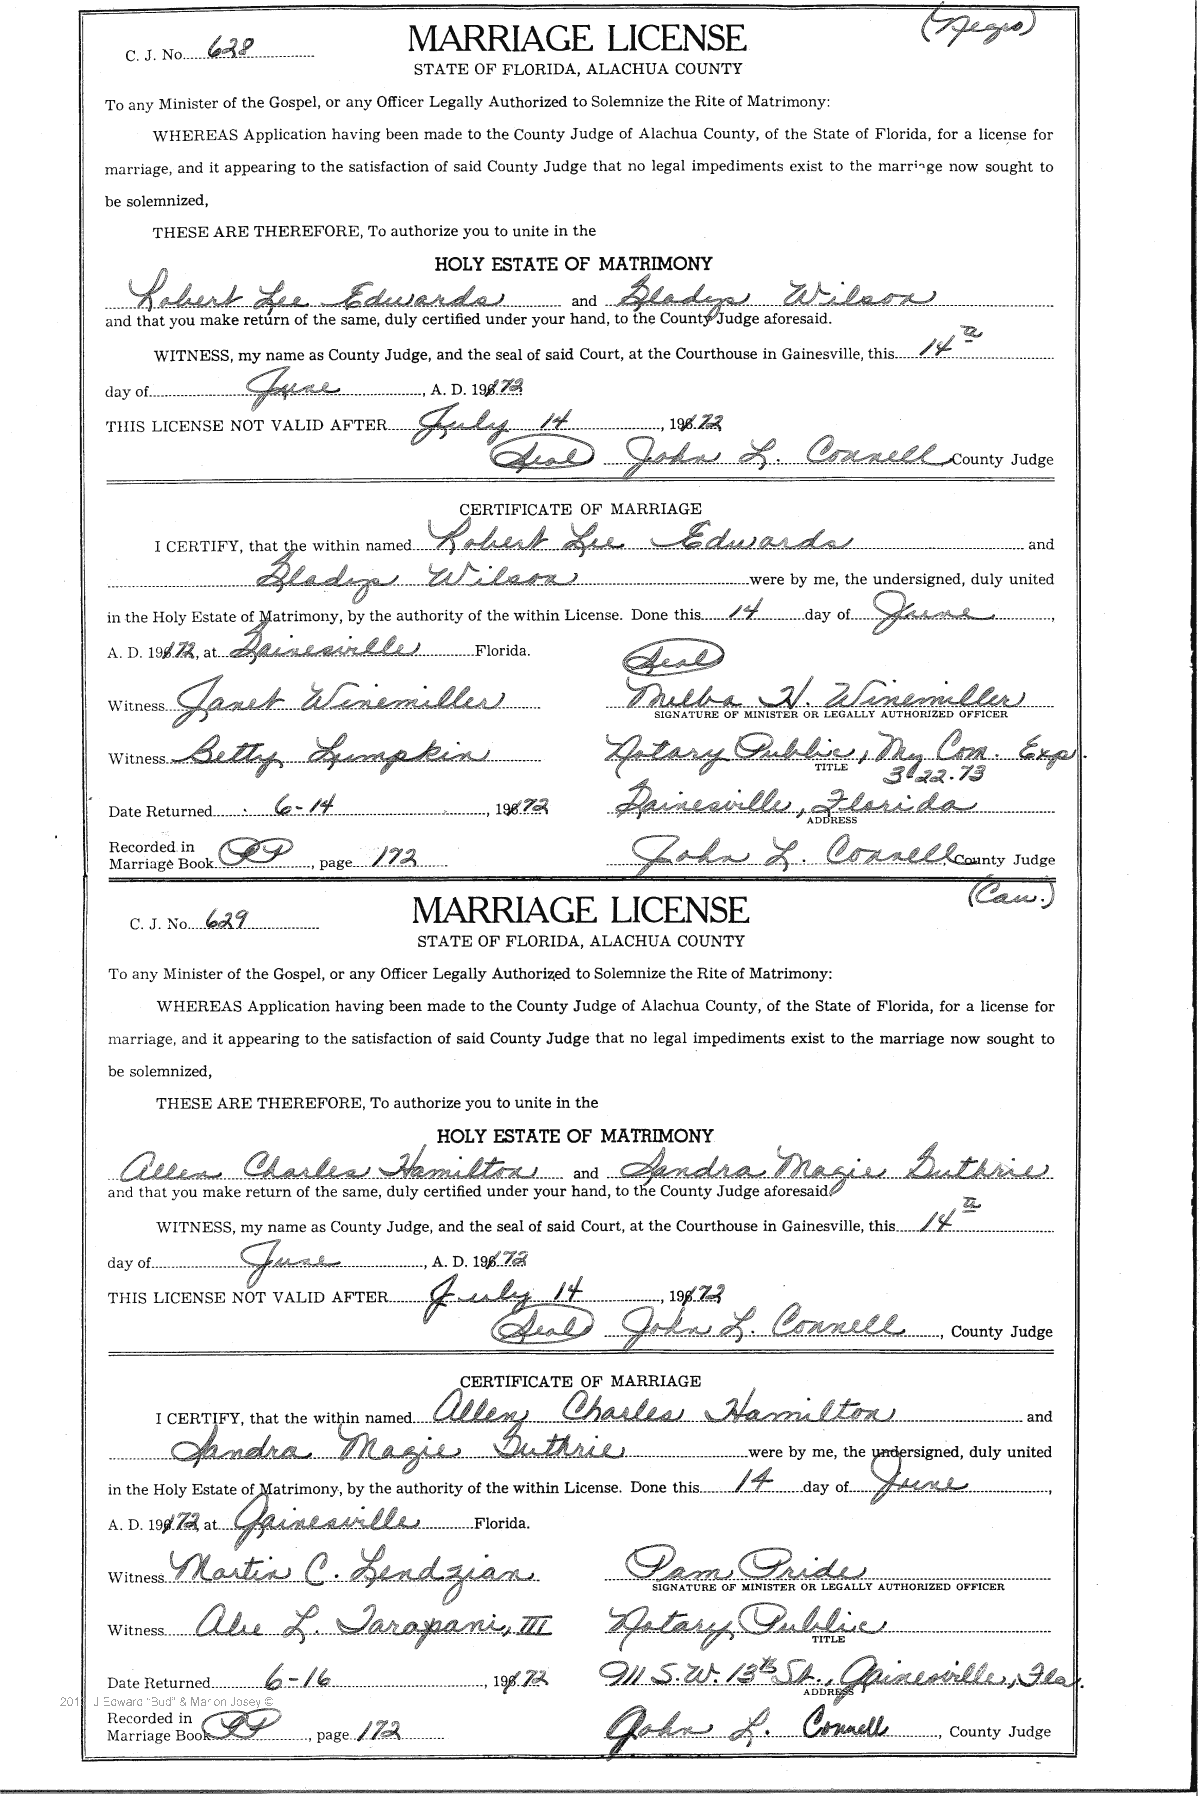 (Negro)
C. J. No. 628
MARRIAGE LICENSE
STATE OF FLORIDA, ALACHUA COUNTY
To any Minister of the Gospel, or any Officer Legally Authorized to Solemnize the Rite of Matrimony:
WHEREAS Application having been made to the County Judge of Alachua County, of the State of Florida, for a license for
marriage, and it appearing to the satisfaction of said County Judge that no legal impediments exist to the marriage now sought to
be solemnized,
THESE ARE THEREFORE, To authorize you to unite in the
HOLY ESTATE OF MATRIMONY
Robert Lee Edwards and Gladys Wilson
and that you make return of the same, duly certified under your hand, to the County Judge aforesaid.
WITNESS, my name as County Judge, and the seal of said Court, at the Courthouse in Gainesville, this 14th
day of June, A. D. 1972
THIS LICENSE NOT VALID AFTER July 14, 1972
(Seal) John L. Connell County Judge
CERTIFICATE OF MARRIAGE
I CERTIFY, that the within named Robert Lee Edwards and
Gladys Wilson were by me, the undersigned, duly united
in the Holy Estate of Matrimony, by the authority of the within License. Done this 14 day of June,
A. D. 1972, at Gainesville Florida. (Seal)
Witness Janet Winemiller Melba H. Winemiller
SIGNATURE OF MINISTER OR LEGALLY AUTHORIZED OFFICER
Witness Betty Lumpkin Notary Public, My Com. Exp.
TITLE 3-22-73
Date Returned 6-14, 1972 Gainesville, Florida
ADDRESS
Recorded in
Marriage Book PP, page 172 John L. Connell County Judge
(Cau.)
C. J. No. 629
MARRIAGE LICENSE
STATE OF FLORIDA, ALACHUA COUNTY
To any Minister of the Gospel, or any Officer Legally Authorized to Solemnize the Rite of Matrimony:
WHEREAS Application having been made to the County Judge of Alachua County, of the State of Florida, for a license for
marriage, and it appearing to the satisfaction of said County Judge that no legal impediments exist to the marriage now sought to
be solemnized,
THESE ARE THEREFORE, To authorize you to unite in the
HOLY ESTATE OF MATRIMONY
Allen Charles Hamilton and Sandra Magie Guthrie
and that you make return of the same, duly certified under your hand, to the County Judge aforesaid
WITNESS, my name as County Judge, and the seal of said Court, at the Courthouse in Gainesville, this 14th
day of June, A. D. 1972
THIS LICENSE NOT VALID AFTER July 14, 1972
(Seal) John L. Connell, County Judge
CERTIFICATE OF MARRIAGE
I CERTIFY, that the within named Allen Charles Hamilton and
Sandra Magie Guthrie were by me, the undersigned, duly united
in the Holy Estate of Matrimony, by the authority of the within License. Done this 14 day of June,
A. D. 1972 at Gainesville Florida.
Witness Martin C. Lendzian Pam Pride
SIGNATURE OF MINISTER OR LEGALLY AUTHORIZED OFFICER
Witness Abe L. Tarapani, III Notary Public
TITLE
Date Returned 6-16, 1972 911 S.W. 13th St., Gainesville, Fla.
ADDRESS
J Edward "Bud" & Marion Josey ©
Recorded in
Marriage Book PP, page 172 John L. Connell, County Judge